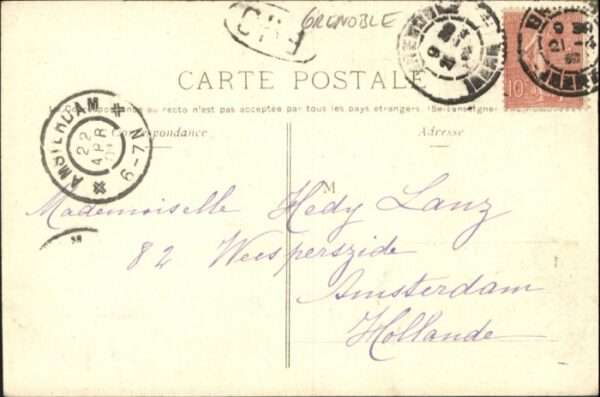 GRENOBLE
CARTE POSTALE
La Correspondance au recto n'est pas acceptée par tous les pays étrangers (Se renseigner
Correspondance
Adresse
AMSTERDAM
22
APR
6-7N
10
M
Mademoiselle Hedy Lanz
82 Weesperszide
Amsterdam
Hollande